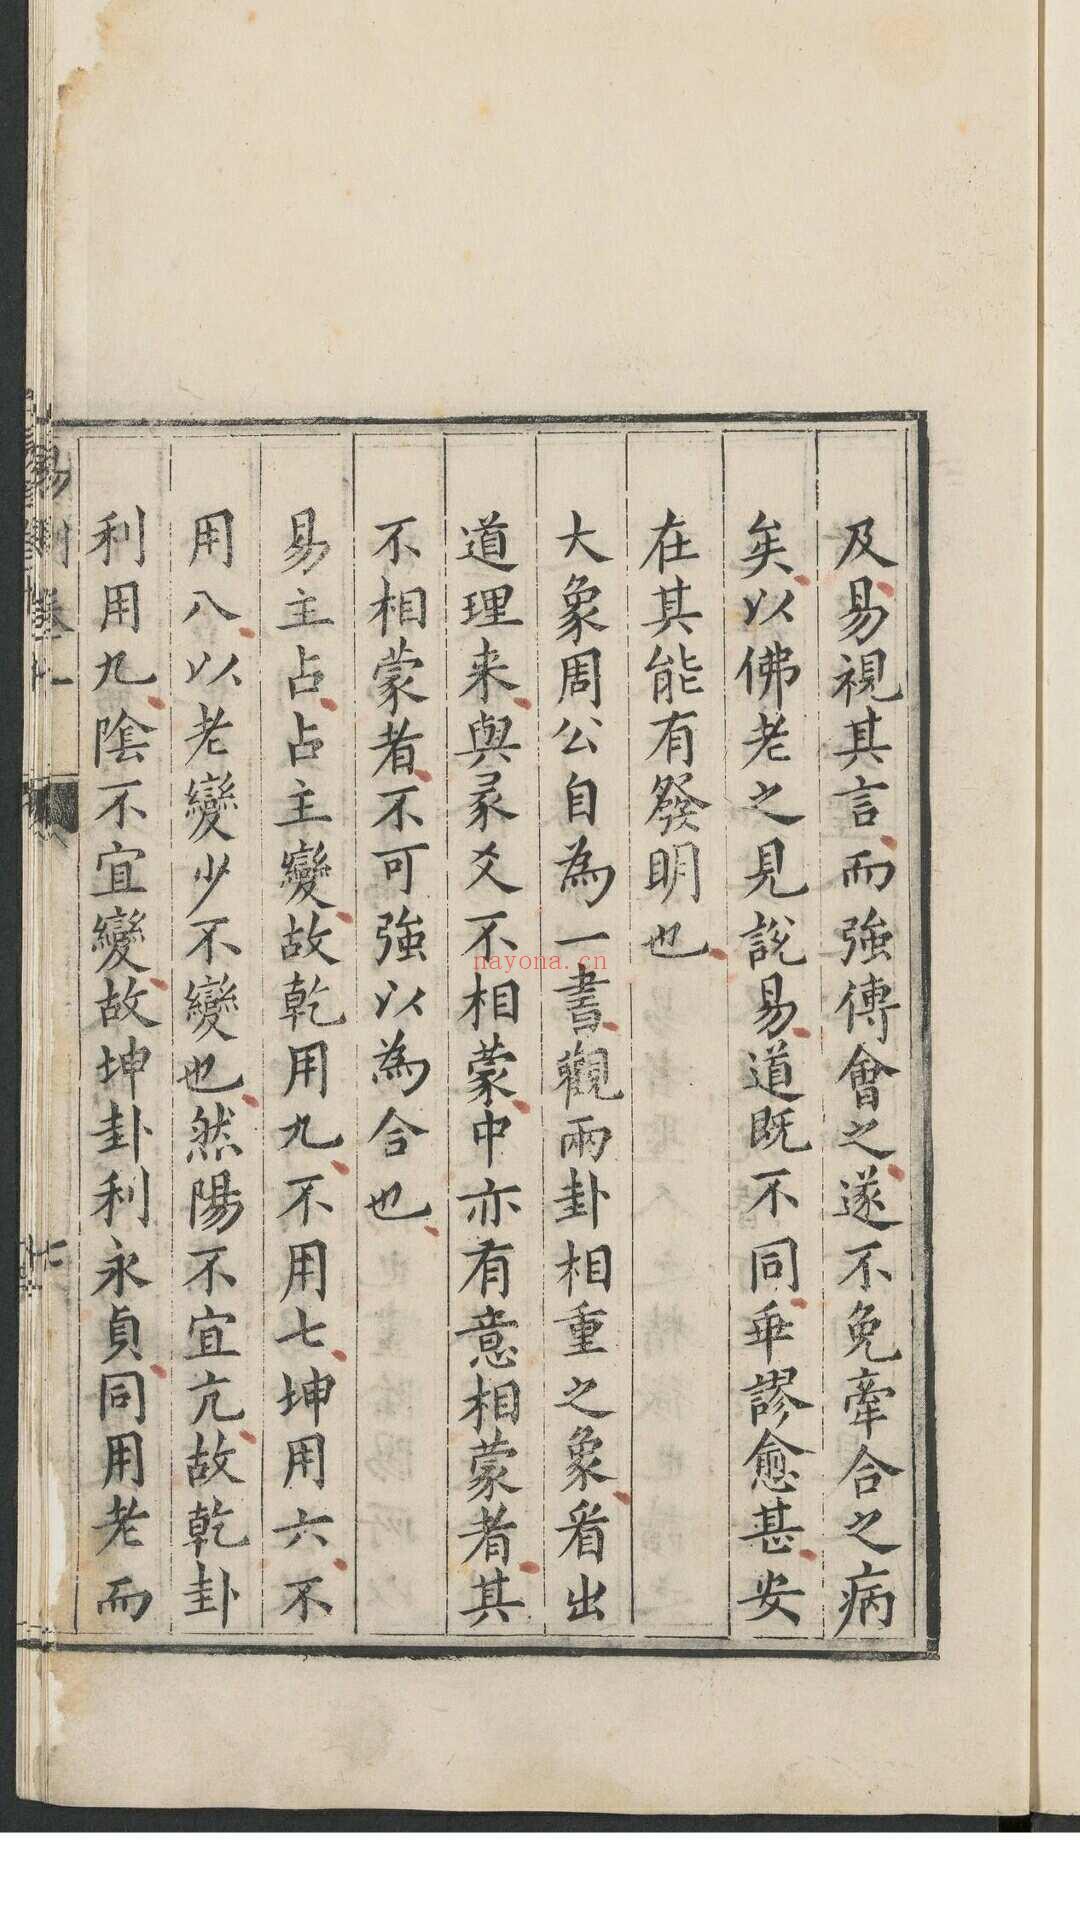 及易視其言而強傅會之遂不免牽合之病
矣以佛老之見說易道既不同乖謬愈甚安
在其能有發明也
大象周公自為一書觀兩卦相重之象看出
道理来與彖爻不相蒙中亦有意相蒙者其
不相蒙者不可強以為合也
易主占占主變故乾用九不用七坤用六不
用八以老變少不變也然陽不宜亢故乾卦
利用九陰不宜變故坤卦利永貞同用老而
nayona.cn